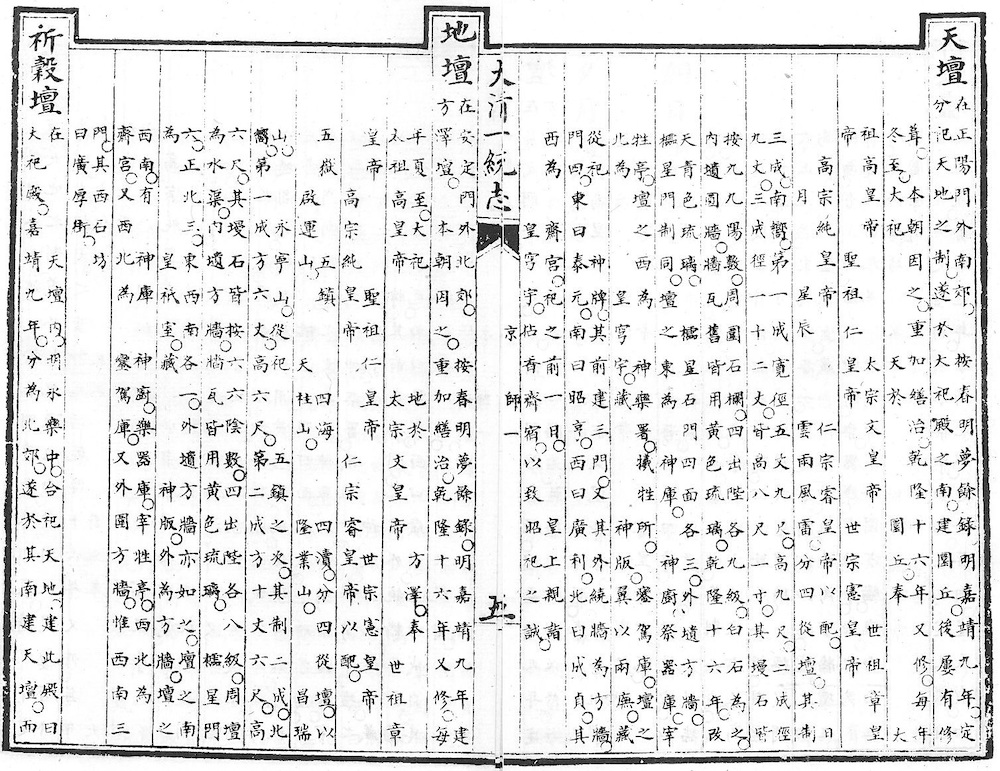 天壇
在正陽門外南郊○按春明夢餘錄明嘉靖九年定
分祀天地之制○遂於大祀殿之南建圜丘○後屢有修
葺○本朝因之○重加繕治○乾隆十六年又修○每年
冬至○大祀 天於 圜丘奉 大
祖高皇帝 太宗文皇帝 世祖章皇
帝 聖祖仁皇帝 世宗憲皇帝
高宗純皇帝 仁宗睿皇帝以配○日
月 星辰 雲雨風雷分四從壇○其制
三成南嚮○第一成寬徑五丈九尺○高九尺○二成徑
九丈○三成徑一十二丈○皆高八尺一寸○其墁石皆
按九九陽數○周圍石欄四出陛各九級○白石為之○
內壝圓牆○牆瓦舊皆用黃色琉璃○乾隆十六年○改
天青色琉璃○櫺星石門四面各三○外壝方牆○
櫺星門制同○壇之東為神庫神廚祭器庫○宰
牲亭○壇之西為神樂署○犧牲所○鑾駕庫○壇之
北為 皇穹宇○藏 神版○翼以兩廡○藏
從祀 神牌○其前建三門○又其外繞牆為方牆○
門四○東曰泰元○南曰昭亨○西曰廣利○北曰成貞○其
西為 齋宮○祀之前一日○ 皇上親詣
皇穹宇○佔香齋宿○以致昭祀之誠○
大清一統志 京師一 五
地壇
在安定門外北郊○按春明夢餘錄明嘉靖九年建
方澤壇○本朝因之○重加繕治○乾隆十六年又修○每
年夏至○大祀 地於 方澤○奉
太祖高皇帝 太宗文皇帝 世祖章
皇帝 聖祖仁皇帝 世宗憲皇帝
高宗純皇帝 仁宗睿皇帝以配○
五嶽 五鎮 四海 四瀆○分四從壇○以
啟運山 天柱山○ 隆業山○ 昌瑞
山○ 永寧山○從祀五鎮之次○其制二成○北
嚮○第一成方六丈○高六尺○第二成方十丈六尺○高
六尺○其墁石皆按六六陰數○四出陛各八級○周壇
為水渠○內壝方牆○牆瓦皆用黃色琉璃○櫺星門
六○正北三○東西南各一○外壝方牆亦如之○壇之南
為 皇祇室○藏 神版○外為方牆○壇之
西南有 神庫 神廚○樂器庫○宰牲亭○西北為
齋宮○又西北為 鑾駕庫○又外圍方牆○惟西南三
門○其西石坊
曰廣厚街○
祈穀壇
在 天壇內○明永樂中○合祀天地○建此殿曰
大祀殿○嘉靖九年○分為北郊○遂於其南建天壇○而